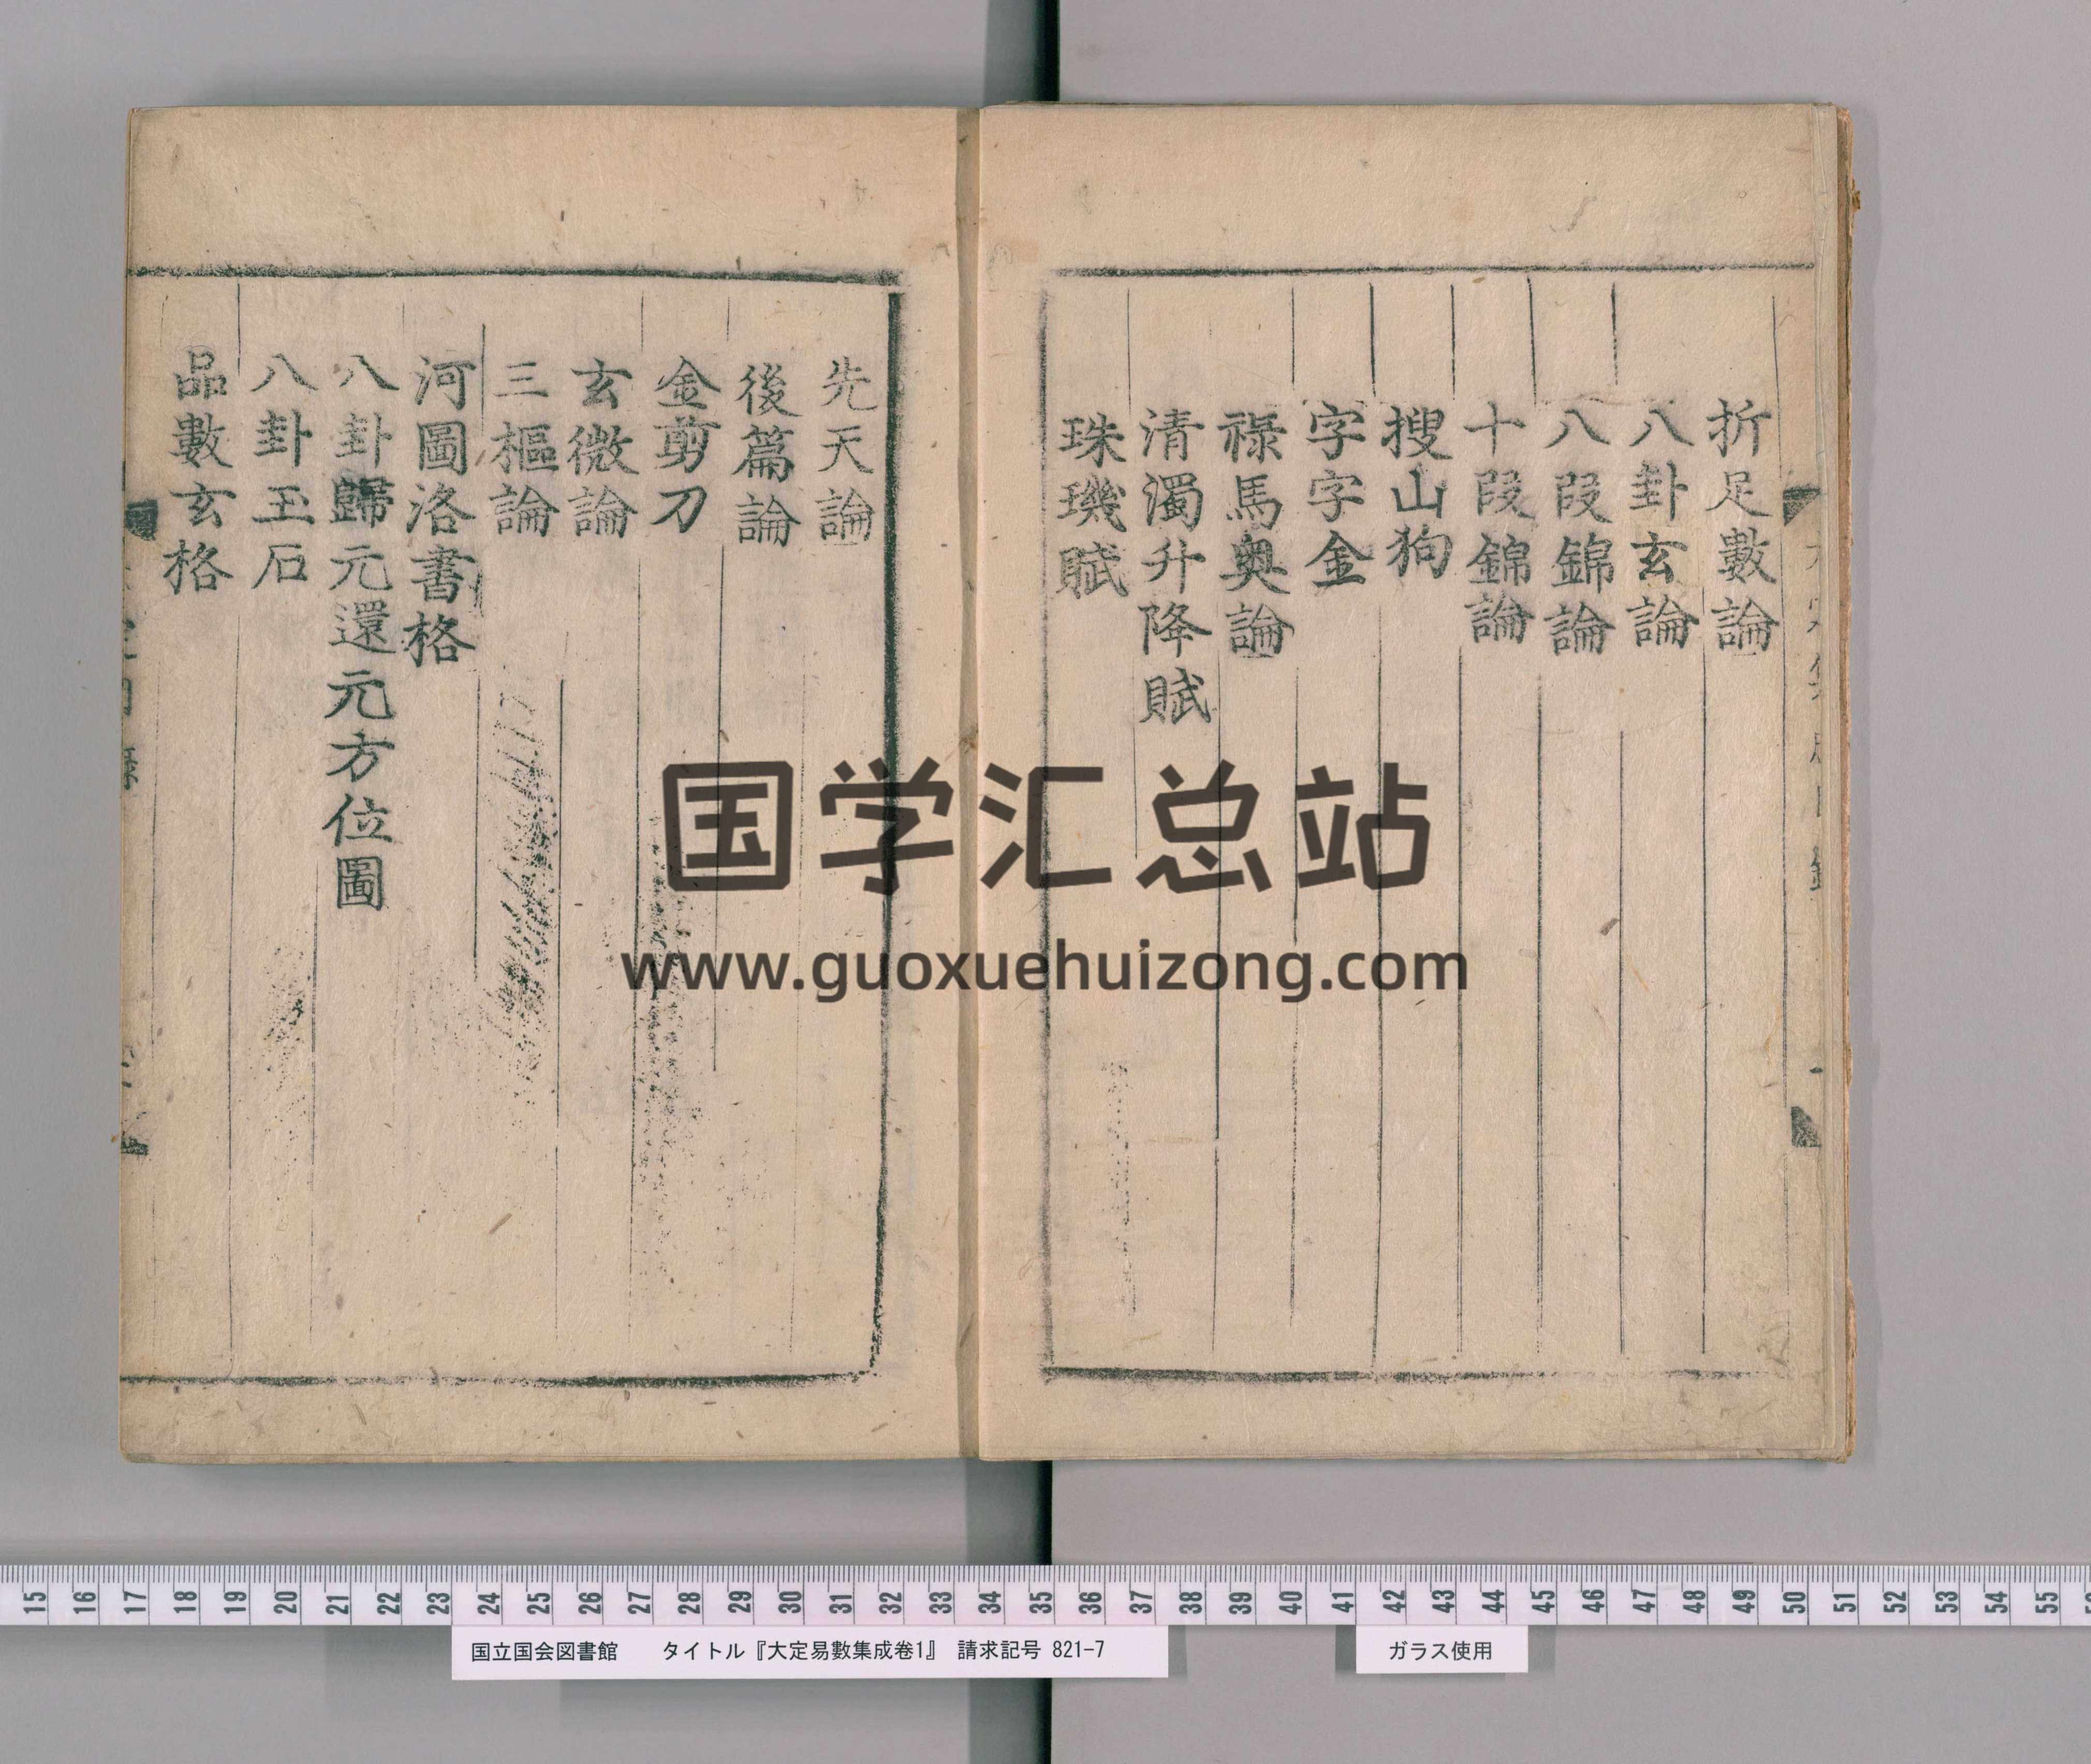 折足數論
八卦玄論
八段錦論
十段錦論
搜山狗
字字金
祿馬奧論
清濁升降賦
珠璣賦
先天論
後篇論
金剪刀
玄微論
三樞論
河圖洛書格
八卦歸元還元方位圖
八卦玉石
品數玄格
国学汇总站
www.guoxuehuizong.com
15 16 17 18 19 20 21 22 23 24 25 26 27 28 29 30 31 32 33 34 35 36 37 38 39 40 41 42 43 44 45 46 47 48 49 50 51 52 53 54 55
国立国会図書館 タイトル『大定易數集成卷1』 請求記号 821-7
ガラス使用